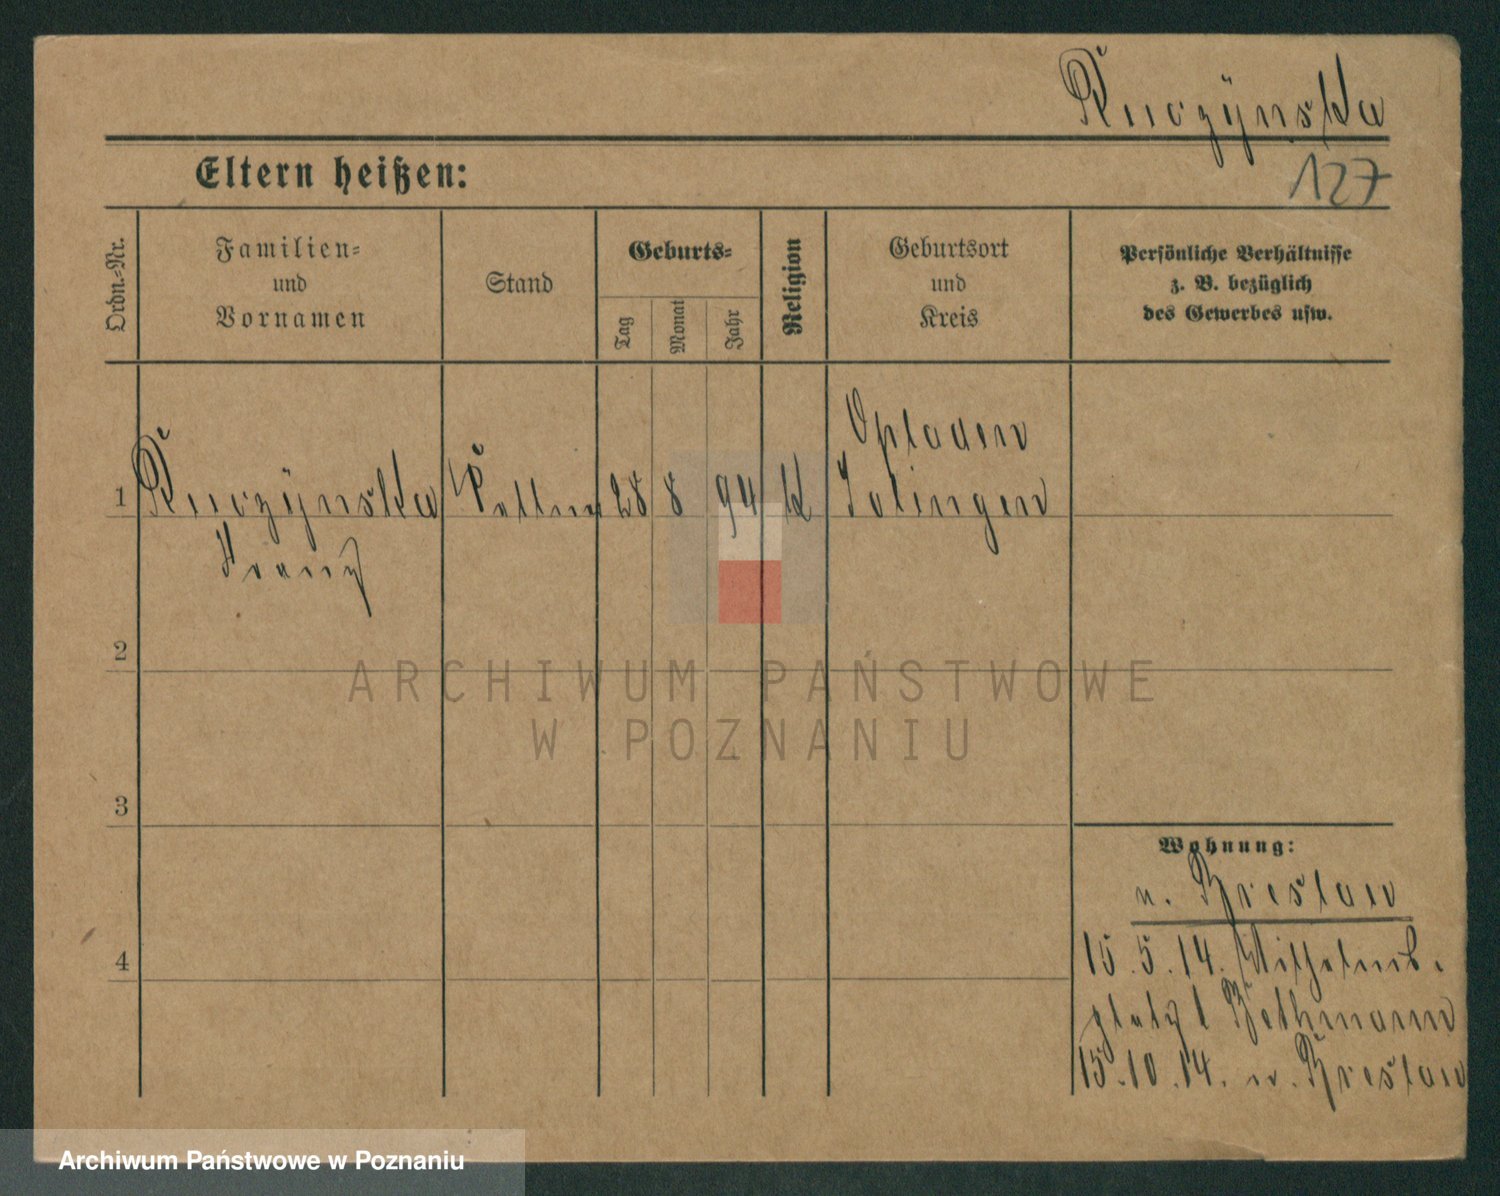 Kuczynska
Eltern heißen:
127
Ordn.-Nr.
Familien-
und
Vornamen
Stand
Geburts-
Tag
Monat
Jahr
Religion
Geburtsort
und
Kreis
Persönliche Verhältnisse
z. B. bezüglich
des Gewerbes usw.
Opladen
1 Kuczynska 28 8 94 k Solingen
Franz
2
ARCHIWUM PAŃSTWOWE
W POZNANIU
3
Wohnung:
n. Breslau
4
15.5.14. Wilhelmb.
platz 1 Bethmann
15.10.14. n. Breslau
Archiwum Państwowe w Poznaniu